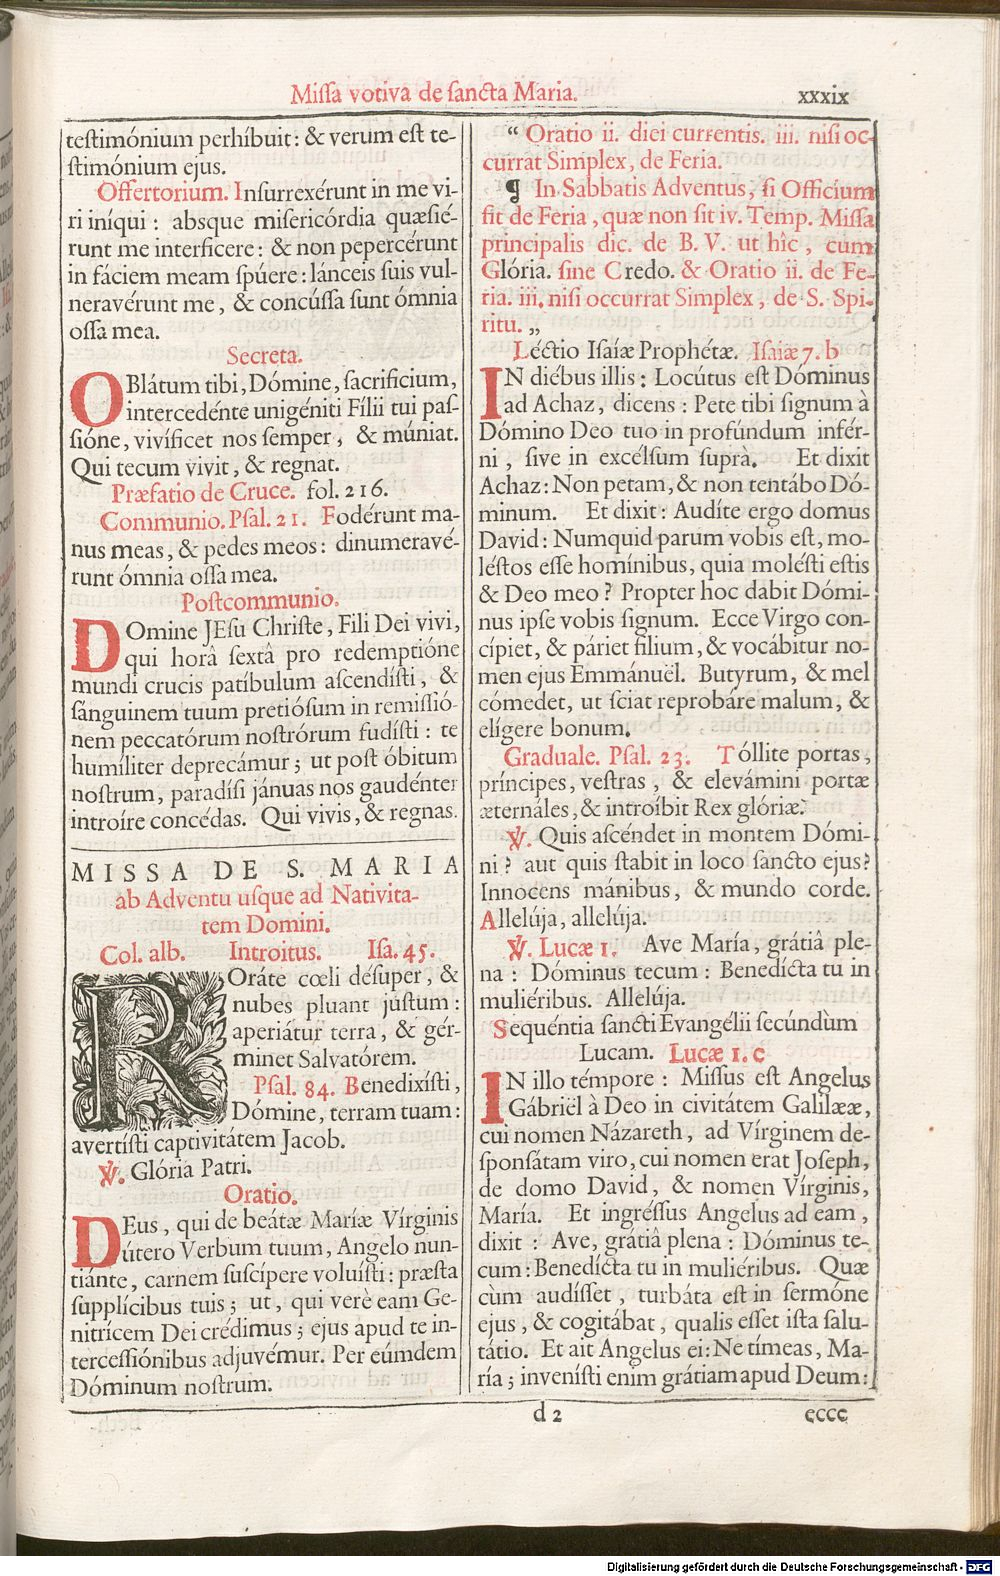 Missa votiva de sancta Maria.
xxxix
testimónium perhíbuit: & verum est te-
stimónium ejus.
Offertorium. Insurrexérunt in me vi-
ri iníqui: absque misericórdia quæsié-
runt me interficere: & non pepercérunt
in fáciem meam spúere: lánceis suis vul-
neravérunt me, & concússa sunt ómnia
ossa mea.
Secreta.
OBlátum tibi, Dómine, sacrificium,
intercedénte unigéniti Fílii tui pas-
sióne, vivíficet nos semper, & múniat.
Qui tecum vivit, & regnat.
Præfatio de Cruce. fol. 216.
Communio. Psal. 21. Fodérunt ma-
nus meas, & pedes meos: dinumeravé-
runt ómnia ossa mea.
Postcommunio.
DOmine JEsu Christe, Fili Dei vivi,
qui horâ sextâ pro redemptióne
mundi crucis patíbulum ascendísti, &
sánguinem tuum pretiósum in remissió-
nem peccatórum nostrórum fudísti: te
humíliter deprecámur; ut post óbitum
nostrum, paradísi jánuas nos gaudénter
introíre concédas. Qui vivis, & regnas.
MISSA DE S. MARIA
ab Adventu usque ad Nativita-
tem Domini.
Col. alb. Introitus. Isa. 45.
ROráte cœli désuper, &
nubes pluant justum:
aperiátur terra, & gér-
minet Salvatórem.
Psal. 84. Benedixísti,
Dómine, terram tuam:
avertísti captivitátem Jacob.
℣. Glória Patri.
Oratio.
DEus, qui de beátæ Maríæ Vírginis
útero Verbum tuum, Angelo nun-
tiánte, carnem suscípere voluísti: præsta
supplícibus tuis; ut, qui verè eam Ge-
nitrícem Dei crédimus; ejus apud te in-
tercessiónibus adjuvémur. Per eúmdem
Dóminum nostrum.
“ Oratio ii. diei currentis. iii. nisi oc-
currat Simplex, de Feria.
¶ In Sabbatis Adventus, si Officium
fit de Feria, quæ non sit iv. Temp. Missa
principalis dic. de B. V. ut hîc, cum
Glória. sine Credo. & Oratio ii. de Fe-
ria. iii. nisi occurrat Simplex, de S. Spi-
ritu. „
Léctio Isaíæ Prophétæ. Isaiæ 7. b
IN diébus illis: Locútus est Dóminus
ad Achaz, dicens: Pete tibi signum à
Dómino Deo tuo in profúndum infér-
ni, sive in excélsum suprà. Et dixit
Achaz: Non petam, & non tentábo Dó-
minum. Et dixit: Audíte ergo domus
David: Numquid parum vobis est, mo-
léstos esse homínibus, quia molésti estis
& Deo meo? Propter hoc dabit Dómi-
nus ipse vobis signum. Ecce Virgo con-
cípiet, & páriet filium, & vocábitur no-
men ejus Emmánuël. Butyrum, & mel
cómedet, ut sciat reprobáre malum, &
elígere bonum.
Graduale. Psal. 23. Tóllite portas,
príncipes, vestras, & elevámini portæ
æternáles, & introíbit Rex glóriæ.
℣. Quis ascéndet in montem Dómi-
ni? aut quis stabit in loco sancto ejus?
Innocens mánibus, & mundo corde.
Allelúja, allelúja.
℣. Lucæ 1. Ave María, grátiâ ple-
na: Dóminus tecum: Benedícta tu in
muliéribus. Allelúja.
Sequéntia sancti Evangélii secúndùm
Lucam. Lucæ 1. c
IN illo témpore: Missus est Angelus
Gábriël à Deo in civitátem Galilææ,
cui nomen Názareth, ad Vírginem de-
sponsátam viro, cui nomen erat Joseph,
de domo David, & nomen Vírginis,
María. Et ingréssus Angelus ad eam,
dixit: Ave, grátiâ plena: Dóminus te-
cum: Benedícta tu in muliéribus. Quæ
cùm audísset, turbáta est in sermóne
ejus, & cogitábat, qualis esset ista salu-
tátio. Et ait Angelus ei: Ne tímeas, Ma-
ría; invenísti enim grátiam apud Deum:
d 2
ecce
Digitalisierung gefördert durch die Deutsche Forschungsgemeinschaft - DFG